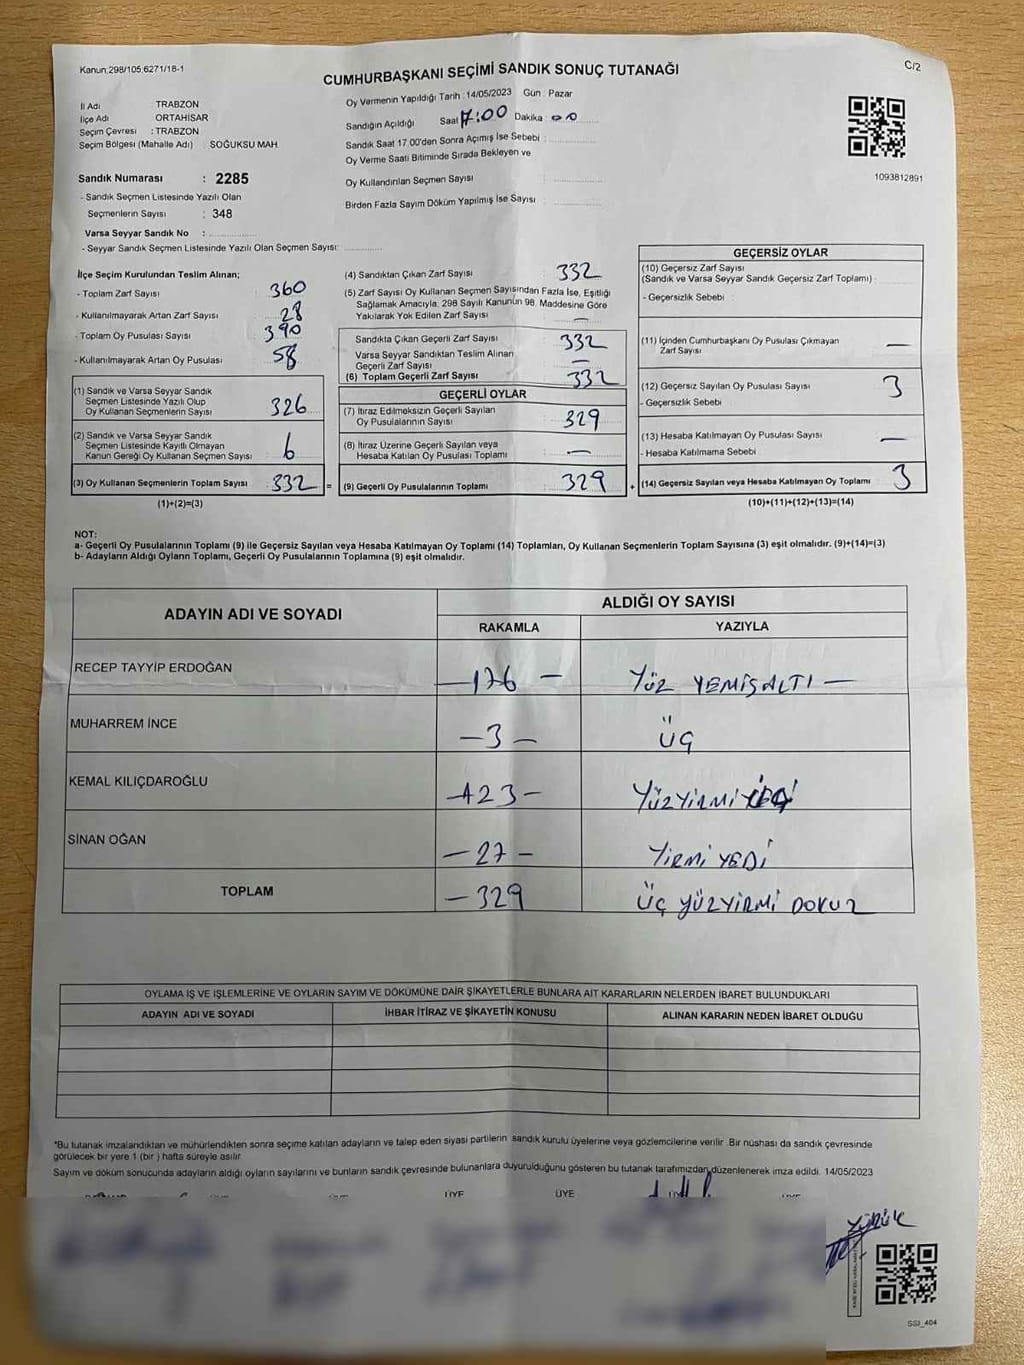 Kanun:298/105,6271/18-1
C/2
CUMHURBAŞKANI SEÇİMİ SANDIK SONUÇ TUTANAĞI
İl Adı TRABZON
İlçe Adı ORTAHİSAR
Seçim Çevresi : TRABZON
Seçim Bölgesi (Mahalle Adı) : SOĞUKSU MAH
Sandık Numarası : 2285
- Sandık Seçmen Listesinde Yazılı Olan
Seçmenlerin Sayısı : 348
Varsa Seyyar Sandık No :
- Seyyar Sandık Seçmen Listesinde Yazılı Olan Seçmen Sayısı:
Oy Vermenin Yapıldığı Tarih : 14/05/2023 Gün : Pazar
Sandığın Açıldığı Saat 17:00 Dakika 00
Sandık Saat 17.00'den Sonra Açımış İse Sebebi :
Oy Verme Saati Bitiminde Sırada Bekleyen ve
Oy Kullandırılan Seçmen Sayısı :
Birden Fazla Sayım Döküm Yapılmış İse Sayısı :
1093812891
İlçe Seçim Kurulundan Teslim Alınan;
- Toplam Zarf Sayısı : 360
- Kullanılmayarak Artan Zarf Sayısı : 28
- Toplam Oy Pusulası Sayısı : 390
- Kullanılmayarak Artan Oy Pusulası : 58
(1) Sandık ve Varsa Seyyar Sandık
Seçmen Listesinde Yazılı Olup
Oy Kullanan Seçmenlerin Sayısı : 326
(2) Sandık ve Varsa Seyyar Sandık
Seçmen Listesinde Kayıtlı Olmayan
Kanun Gereği Oy Kullanan Seçmen Sayısı : 6
(3) Oy Kullanan Seçmenlerin Toplam Sayısı : 332 =
(1)+(2)=(3)
(4) Sandıktan Çıkan Zarf Sayısı : 332
(5) Zarf Sayısı Oy Kullanan Seçmen Sayısından Fazla İse, Eşitliği
Sağlamak Amacıyla, 298 Sayılı Kanunun 98. Maddesine Göre
Yakılarak Yok Edilen Zarf Sayısı : —
Sandıkta Çıkan Geçerli Zarf Sayısı : 332
Varsa Seyyar Sandıktan Teslim Alınan
Geçerli Zarf Sayısı : —
(6) Toplam Geçerli Zarf Sayısı : 332
GEÇERLİ OYLAR
(7) İtiraz Edilmeksizin Geçerli Sayılan
Oy Pusulalarının Sayısı : 329
(8) İtiraz Üzerine Geçerli Sayılan veya
Hesaba Katılan Oy Pusulası Toplamı : —
(9) Geçerli Oy Pusulalarının Toplamı : 329 +
GEÇERSİZ OYLAR
(10) Geçersiz Zarf Sayısı
(Sandık ve Varsa Seyyar Sandık Geçersiz Zarf Toplamı) :
- Geçersizlik Sebebi :
(11) İçinden Cumhurbaşkanı Oy Pusulası Çıkmayan
Zarf Sayısı : —
(12) Geçersiz Sayılan Oy Pusulası Sayısı : 3
- Geçersizlik Sebebi :
(13) Hesaba Katılmayan Oy Pusulası Sayısı : —
- Hesaba Katılmama Sebebi :
(14) Geçersiz Sayılan veya Hesaba Katılmayan Oy Toplamı : 3
(10)+(11)+(12)+(13)=(14)
NOT:
a- Geçerli Oy Pusulalarının Toplamı (9) ile Geçersiz Sayılan veya Hesaba Katılmayan Oy Toplamı (14) Toplamları, Oy Kullanan Seçmenlerin Toplam Sayısına (3) eşit olmalıdır. (9)+(14)=(3)
b- Adayların Aldığı Oyların Toplamı, Geçerli Oy Pusulalarının Toplamına (9) eşit olmalıdır.
ADAYIN ADI VE SOYADI
ALDIĞI OY SAYISI
RAKAMLA YAZIYLA
RECEP TAYYİP ERDOĞAN —176— YÜZ YEMİŞALTI —
MUHARREM İNCE —3— ÜÇ
KEMAL KILIÇDAROĞLU —123— YÜZYİRMİ
SİNAN OĞAN —27— YİRMİ YEDİ
TOPLAM —329 ÜÇ YÜZYİRMİ DOKUZ
OYLAMA İŞ VE İŞLEMLERİNE VE OYLARIN SAYIM VE DÖKÜMÜNE DAİR ŞİKAYETLERLE BUNLARA AİT KARARLARIN NELERDEN İBARET BULUNDUKLARI
ADAYIN ADI VE SOYADI İHBAR İTİRAZ VE ŞİKAYETİN KONUSU ALINAN KARARIN NEDEN İBARET OLDUĞU
*Bu tutanak imzalandıktan ve mühürlendikten sonra seçime katılan adayların ve talep eden siyasi partilerin sandık kurulu üyelerine veya gözlemcilerine verilir. Bir nüshası da sandık çevresinde
görülecek bir yere 1 (bir) hafta süreyle asılır.
Sayım ve döküm sonucunda adayların aldığı oyların sayılarını ve bunların sandık çevresinde bulunanlara duyurulduğunu gösteren bu tutanak tarafımızdan düzenlenerek imza edildi. 14/05/2023
ÜYE ÜYE ÜYE
YÜRÜK
SSI_404